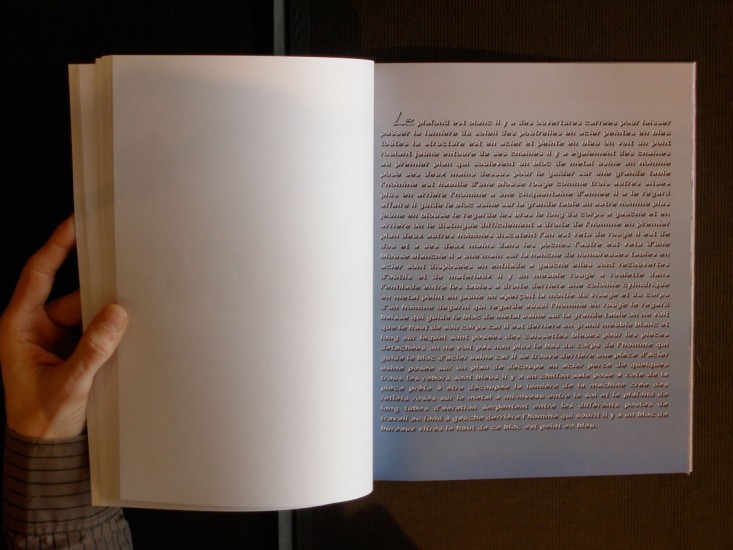 Le plafond est blanc il y a des ouvertures carrées pour laisser
passer la lumière du soleil des poutrelles en acier peintes en bleu
toutes la structure est en acier et peinte en bleu on voit un pont
roulant jaune entouré de ses chaînes il y a également des chaînes
au premier plan qui soulèvent un bloc de métal usiné un homme
pose ses deux mains dessus pour le guider sur une grande table
l'homme est habillé d'une blouse rouge comme trois autres situés
plus en arrière l'homme a une cinquantaine d'année il a le regard
affairé il guide le bloc usiné sur la grande table un autre homme plus
jeune en blouse le regarde les bras le long du corps à gauche et en
arrière on le distingue difficilement à droite de l'homme en premier
plan deux autres hommes discutent l'un est vêtu de rouge il est de
dos et a ses deux mains dans les poches l'autre est vêtu d'une
blouse blanche il a une main sur la hanche de nombreuses tables en
acier sont disposées en enfilade à gauche elles sont recouvertes
d'outils et de matériaux il y un meuble rouge à roulette dans
l'enfilade entre les tables à droite derrière une colonne cylindrique
en métal peint en jaune on aperçoit la moitié du visage et du corps
d'un homme dégarni qui regarde aussi l'homme en rouge le regard
baissé qui guide le bloc de métal usiné sur la grande table on ne voit
que le haut de son corps car il est derrière un grand meuble blanc et
long sur lequel sont posées des caissettes bleues pour les pièces
détachées on ne voit pas non plus le bas du corps de l'homme qui
guide le bloc d'acier usiné car il se trouve derrière une pièce d'acier
usinée posée sur un plan de découpe en acier percé de quelques
trous les rebors sont bleus il y a un chiffon sale posé à côté de la
pièce prête à être découpée la lumière de la machine crée des
reflets rosés sur le métal à mi-niveau entre le sol et le plafond de
long tubes d'aération serpentent entre les différents postes de
travail au fond à gauche derrière l'homme qui sourit il y a un bloc de
bureaux vitrés le haut de ce bloc est peint en bleu.